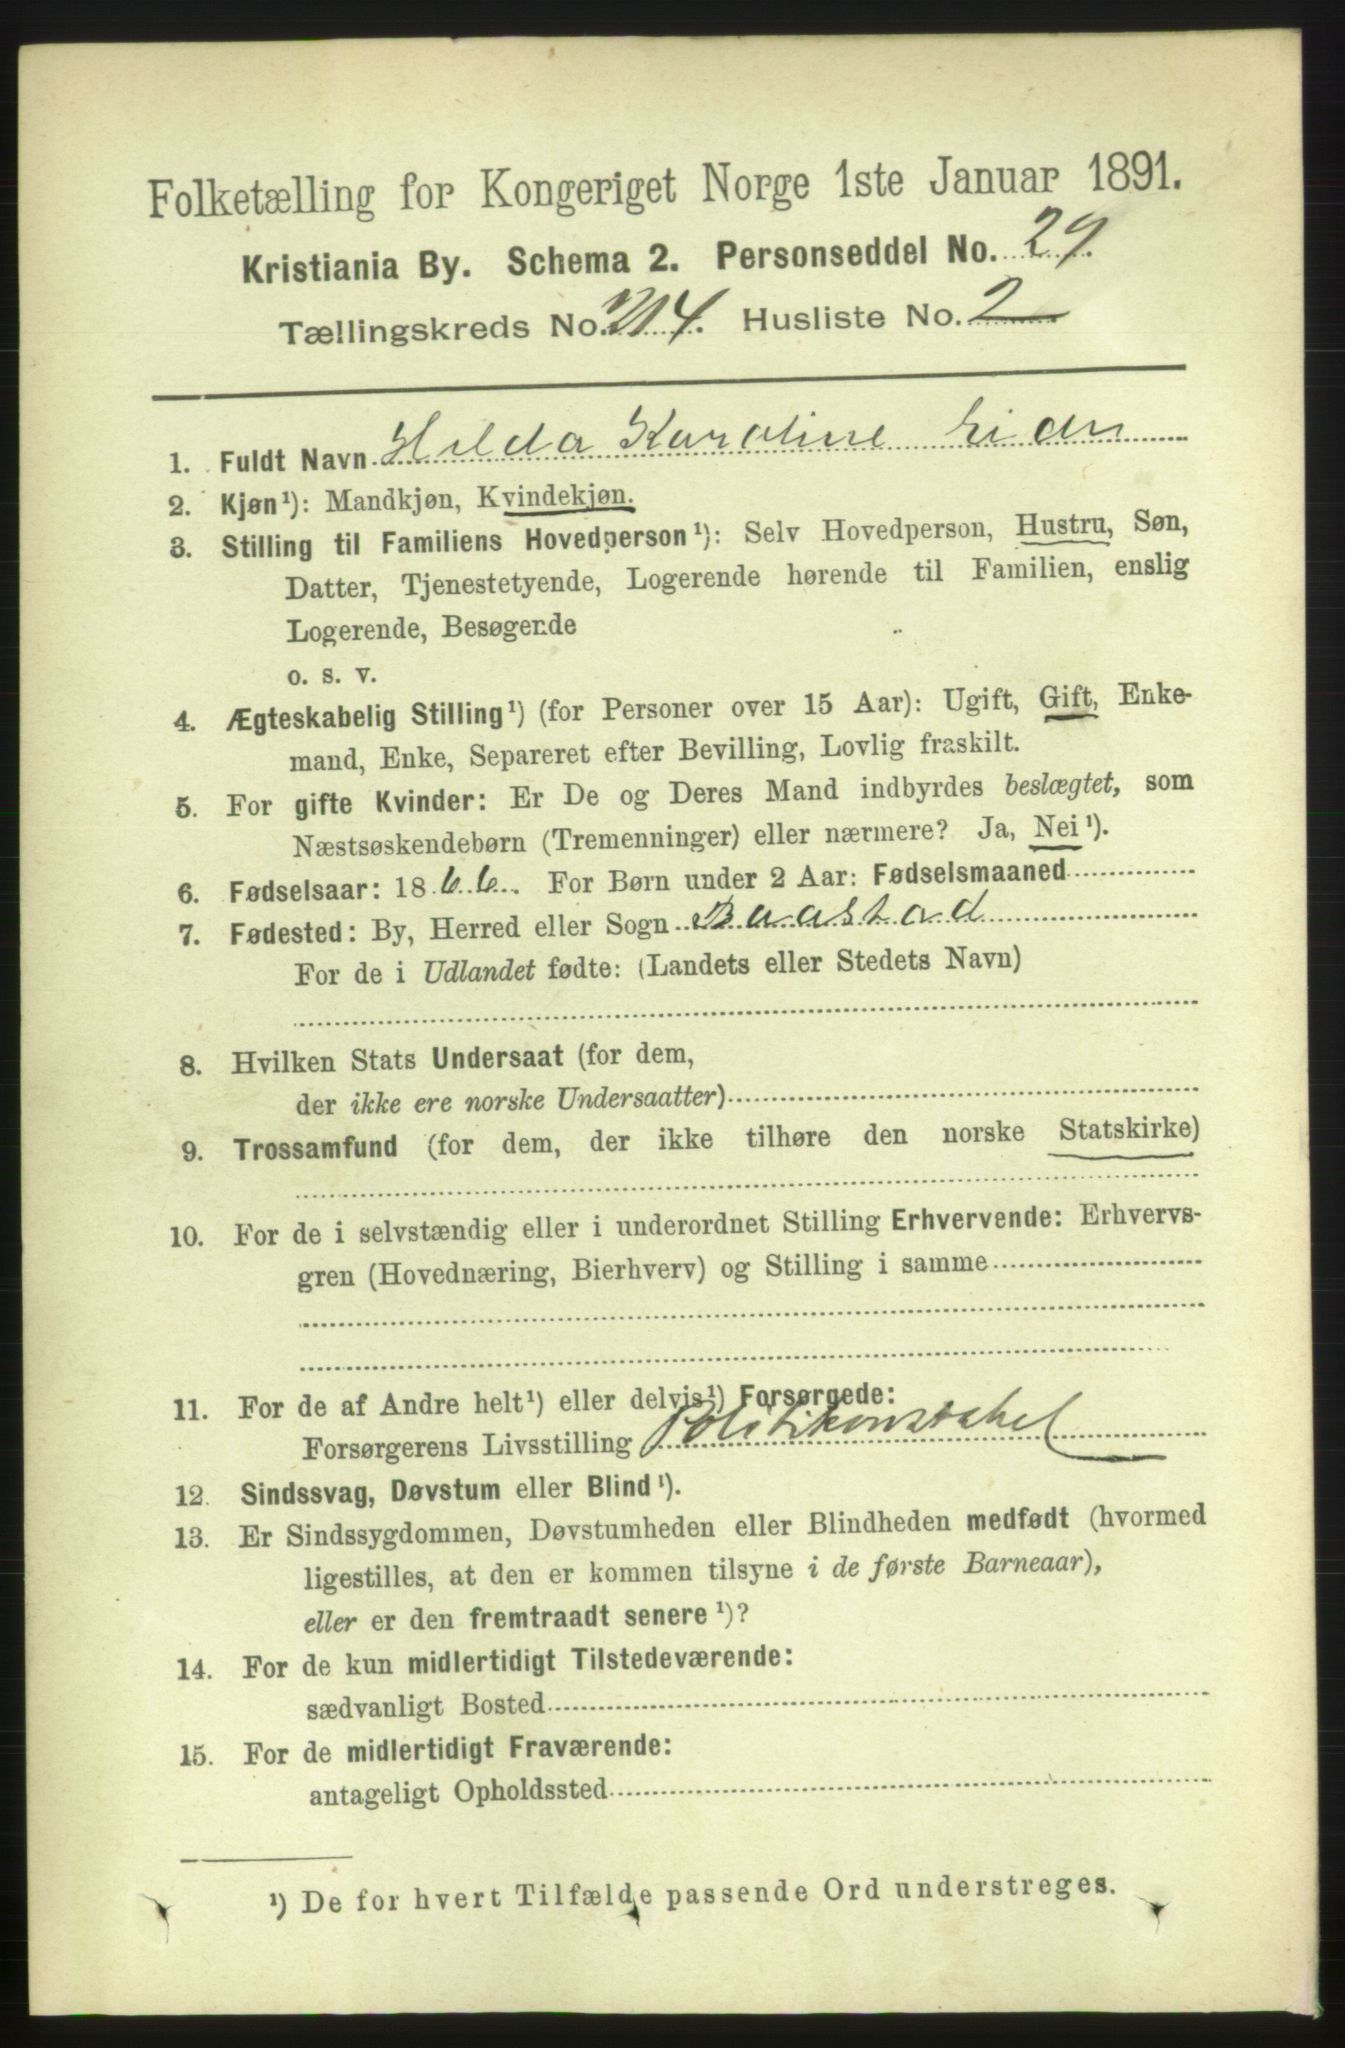 Folketælling for Kongeriget Norge 1ste Januar 1891.
Kristiania By. Schema 2. Personseddel No. 29.
Tællingskreds No. 214. Husliste No. 2
1. Fuldt Navn Hilda Karoline Lien
2. Kjøn¹): Mandkjøn, Kvindekjøn.
3. Stilling til Familiens Hovedperson¹): Selv Hovedperson, Hustru, Søn,
Datter, Tjenestetyende, Logerende hørende til Familien, enslig
Logerende, Besøgende
o. s. v.
4. Ægteskabelig Stilling¹) (for Personer over 15 Aar): Ugift, Gift, Enke-
mand, Enke, Separeret efter Bevilling, Lovlig fraskilt.
5. For gifte Kvinder: Er De og Deres Mand indbyrdes beslægtet, som
Næstsøskendebørn (Tremenninger) eller nærmere? Ja, Nei¹).
6. Fødselsaar: 1866. For Børn under 2 Aar: Fødselsmaaned
7. Fødested: By, Herred eller Sogn Baastad
For de i Udlandet fødte: (Landets eller Stedets Navn)
8. Hvilken Stats Undersaat (for dem,
der ikke ere norske Undersaatter)
9. Trossamfund (for dem, der ikke tilhøre den norske Statskirke)
10. For de i selvstændig eller i underordnet Stilling Erhvervende: Erhvervs-
gren (Hovednæring, Bierhverv) og Stilling i samme
11. For de af Andre helt¹) eller delvis¹) Forsørgede:
Forsørgerens Livsstilling Politikonstabel
12. Sindssvag, Døvstum eller Blind¹).
13. Er Sindssygdommen, Døvstumheden eller Blindheden medfødt (hvormed
ligestilles, at den er kommen tilsyne i de første Barneaar),
eller er den fremtraadt senere¹)?
14. For de kun midlertidigt Tilstedeværende:
sædvanligt Bosted
15. For de midlertidigt Fraværende:
antageligt Opholdssted
¹) De for hvert Tilfælde passende Ord understreges.